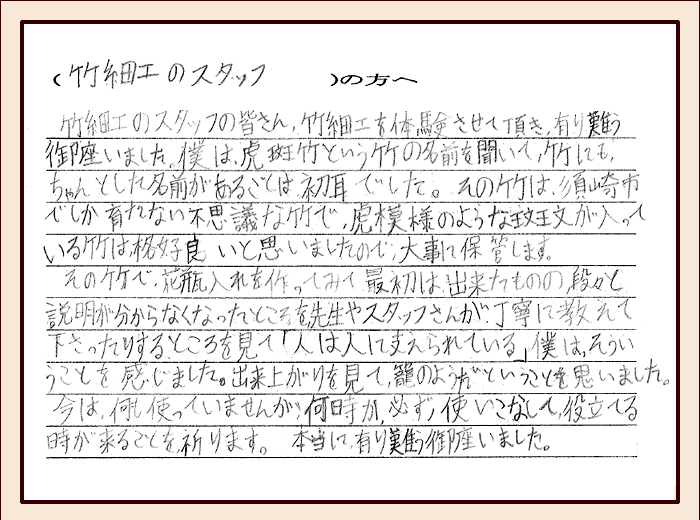 (竹細工のスタッフ　　)の方へ
竹細工のスタッフの皆さん、竹細工を体験させて頂き、有り難う
御座いました。僕は、虎斑竹という竹の名前を聞いて、竹にも、
ちゃんとした名前があることは、初耳でした。その竹は、須崎市
でしか育たない不思議な竹で、虎模様のような斑紋が入って
いる竹は、格好良いと思いましたので、大事に保管します。
その竹で、花瓶入れを作ってみて、最初は、出来たものの、段々と
説明が分からなくなったところを、先生やスタッフさんが、丁寧に教えて
下さったりするところを見て「人は人に支えられている」僕は、そうい
うことを感じました。出来上がりを見て、籠のようだということを思いました。
今は、何も使っていませんが、何時か、必ず、使いこなして、役立てる
時が来ることを、祈ります。　本当に、有り難う御座いました。